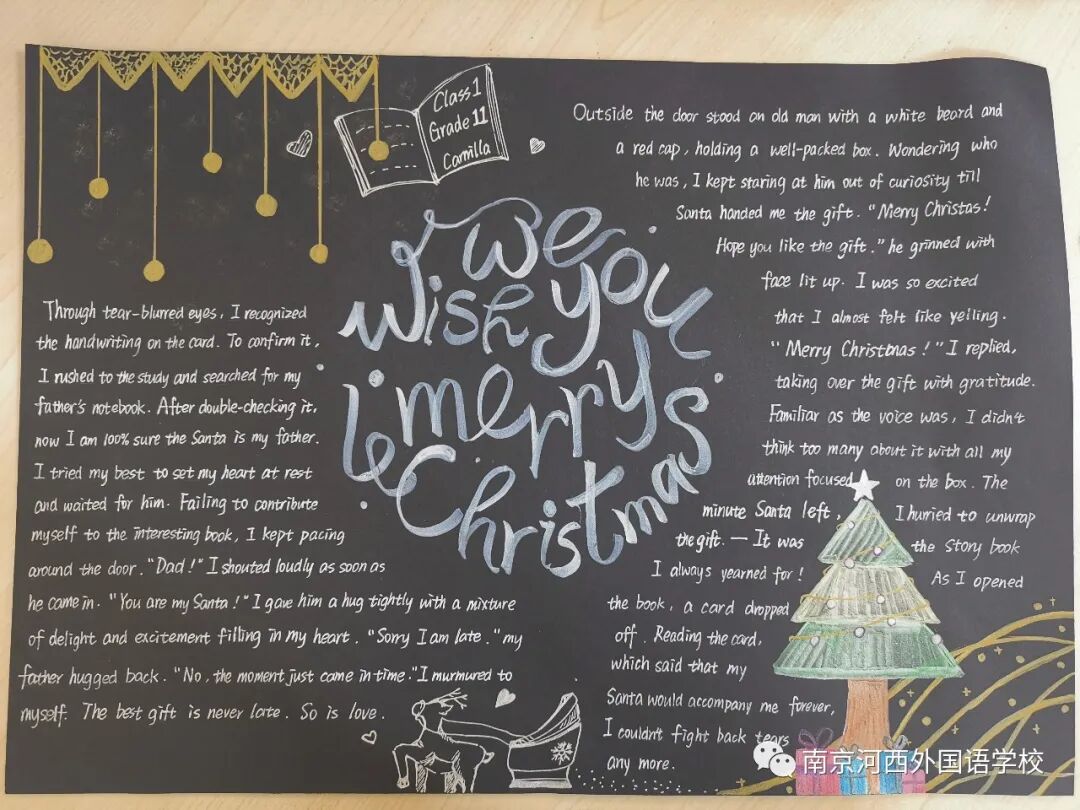 Class 1
Grade 11
Camilla
We
Wish you
a merry
Christmas
Outside the door stood an old man with a white beard and
a red cap, holding a well-packed box. Wondering who
he was, I kept staring at him out of curiosity till
Santa handed me the gift. "Merry Christas!
Hope you like the gift." he grinned with
face lit up. I was so excited
that I almost felt like yelling.
"Merry Christmas!" I replied,
taking over the gift with gratitude.
Familiar as the voice was, I didn't
think too many about it with all my
attention focused on the box. The
minute Santa left, I hurried to unwrap
the gift. — It was the story book
I always yearned for! As I opened
the book, a card dropped
off. Reading the card,
which said that my
Santa would accompany me forever,
I couldn't fight back tears
any more.
Through tear-blurred eyes, I recognized
the handwriting on the card. To confirm it,
I rushed to the study and searched for my
father's notebook. After double-checking it,
now I am 100% sure the Santa is my father.
I tried my best to set my heart at rest
and waited for him. Failing to contribute
myself to the interesting book, I kept pacing
around the door. "Dad!" I shouted loudly as soon as
he came in. "You are my Santa!" I gave him a hug tightly with a mixture
of delight and excitement filling in my heart. "Sorry I am late." my
father hugged back. "No, the moment just came in time." I murmured to
myself. The best gift is never late. So is love.
南京河西外国语学校